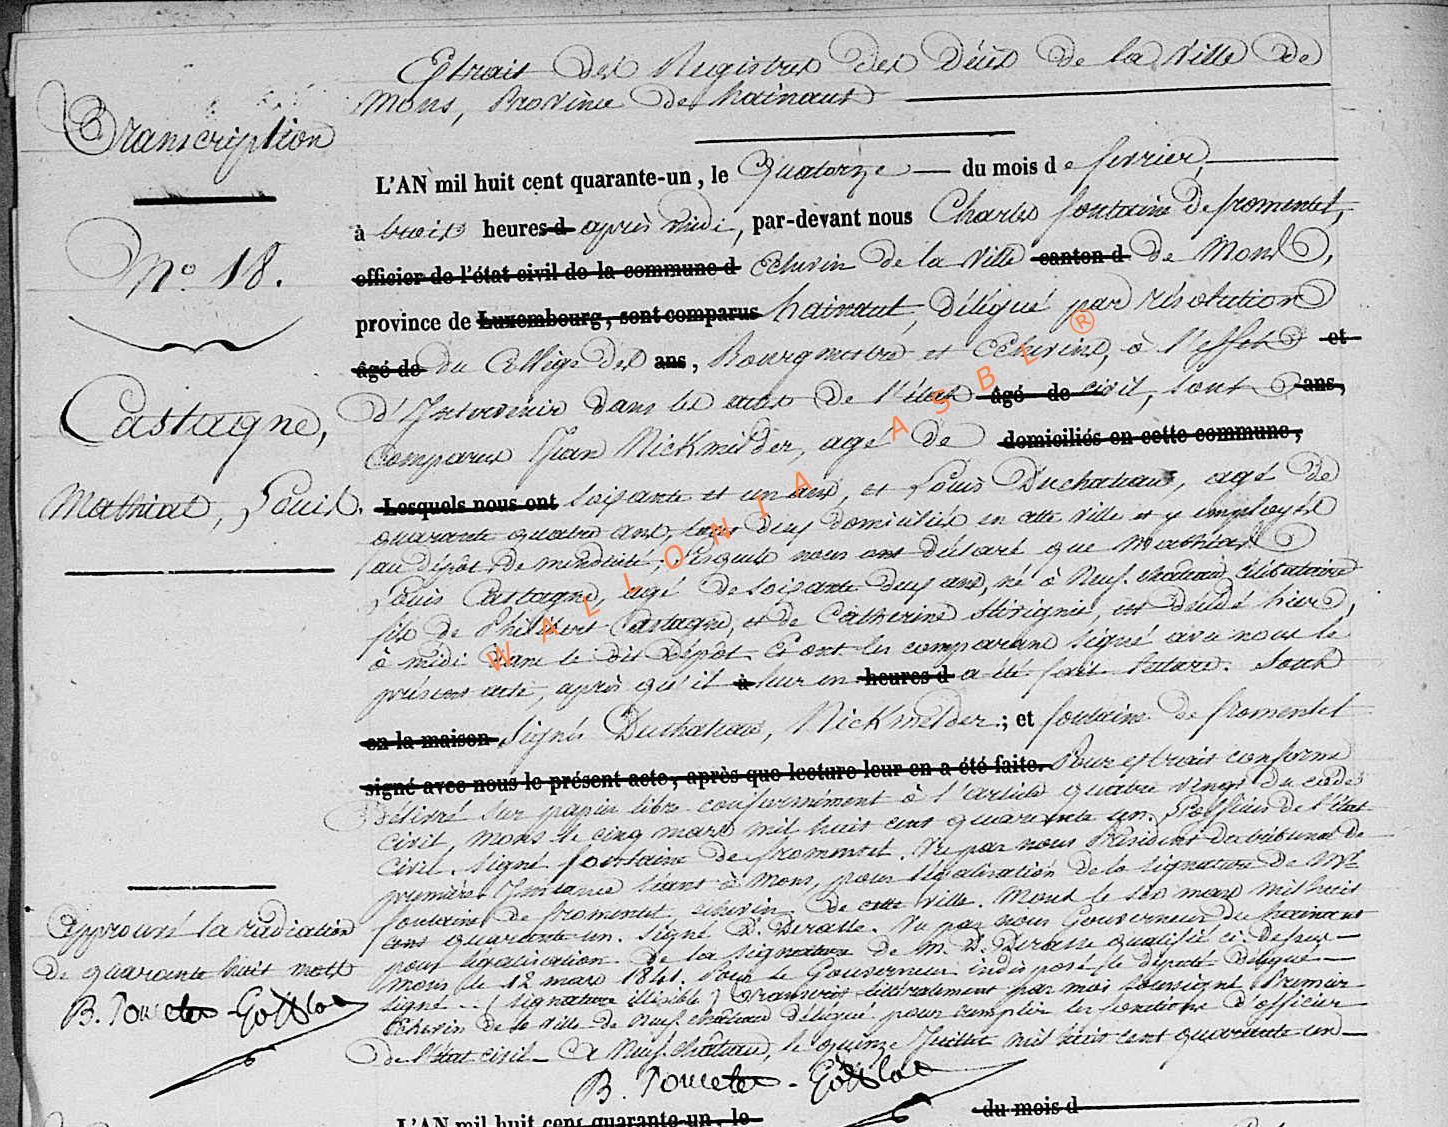 Extrait des Registres des Décès de la Ville de
Mons, Province de hainaut
Transcription
L'AN mil huit cent quarante-un, le Quatorze du mois de fevrier,
à trois heures d après midi, par-devant nous Charles fontaine De fromentel,
N° 18.
officier de l'état civil de la commune d Echevin de la Ville canton d de Mons,
province de Luxembourg, sont comparus hainaut, délégué par résolution
âgé de du Collège des ans, Bourgmestre et Echevins, à l'effet et
d'Intervenir dans les actes de l'état âgé de civil, sont ans,
Castagne,
comparus Jean Nickmilder, agé de domiciliés en cette commune,
Mathias, Louis.
Lesquels nous ont soixante et un ans, et Louis Duchateau, agé de
quarante quatre ans, tous deux domiciliés en cette ville et y employés
au dépôt de mendicité; lesquels nous ont déclaré que Mathias
Louis Castagne, agé de soixante deux ans, né à Neuf-château, célibataire
fils de Philibert Castagne, et de Catherine, est décédé hier,
à midi dans le dit Dépôt. Et ont les comparans signé avec nous le
présent acte, après qu'il à leur en heures d a été fait lecture. Sont
en la maison signés Duchateau, Nickmilder; et fontaine de fromentel
signé avec nous le présent acte, après que lecture leur en a été faite. Pour extrait conforme
Délivré sur papier libre conformément à l'article quatre vingt du code
civil, Mons le cinq mars mil huit cent quarante un. L'officier de l'état
civil. signé fontaine de fromentel. Vu par nous Président du tribunal de
première Instance séant à Mons, pour légalisation de la signature de Mr
fontaine de fromentel, echevin de cette ville. Mons le dix mars mil huit
cent quarante un. Signé D. Vu par nous Gouverneur du hainaut
pour légalisation de la signature de M. D. qualifié ci-dessus
Mons le 12 mars 1841. Pour le Gouverneur indisposé, le Député Délégué
signé (signature illisible) Transcrit littéralement par moi soussigné Premier
Echevin de la Ville de Neuf-château délégué pour remplir les fonctions d'officier
de l'état civil. A Neuf-château, le quinze Juillet mil huit cent quarante un
Approuvé la radiation
de quarante huit mots
L'AN mil huit cent quarante-un, le du mois d
WALLONIA ASBL ®